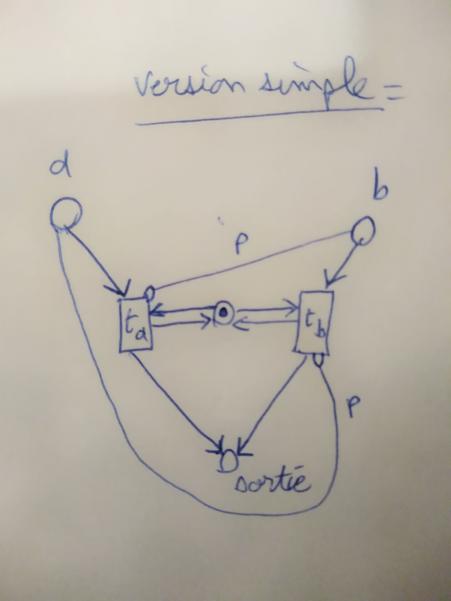 version simple =
d
b
p
td
tb
p
sortie